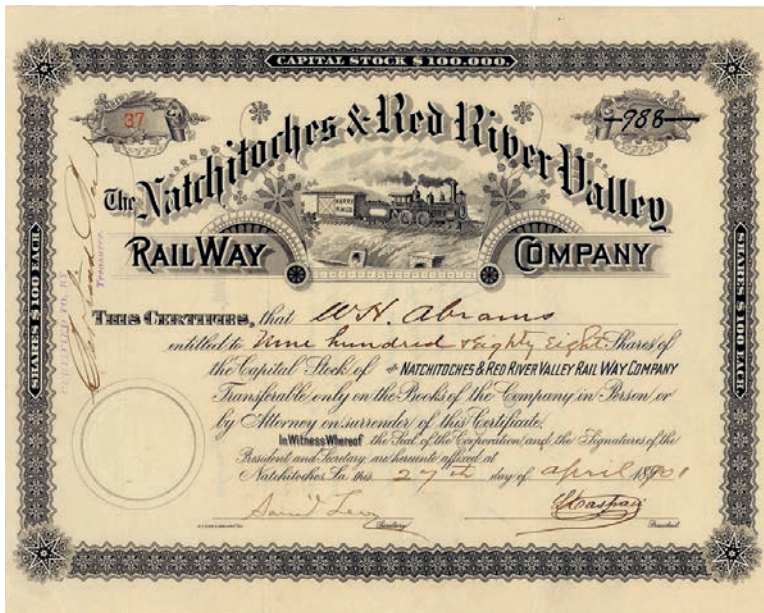 CAPITAL STOCK $100,000.
37
988
The Natchitoches & Red River Valley
RAILWAY COMPANY
SHARES $100 EACH
SHARES $100 EACH
Treasurer.
THIS CERTIFIES, that W.H. Abrams
entitled to Nine hundred & Eighty Eight Shares of
the Capital Stock of THE NATCHITOCHES & RED RIVER VALLEY RAIL WAY COMPANY
Transferable only on the Books of the Company in Person or
by Attorney on surrender of this Certificate.
In Witness Whereof the Seal of the Corporation and the Signatures of the
President and Secretary are hereunto affixed at
Natchitoches, La. this 27th day of April 1901
Secretary
President